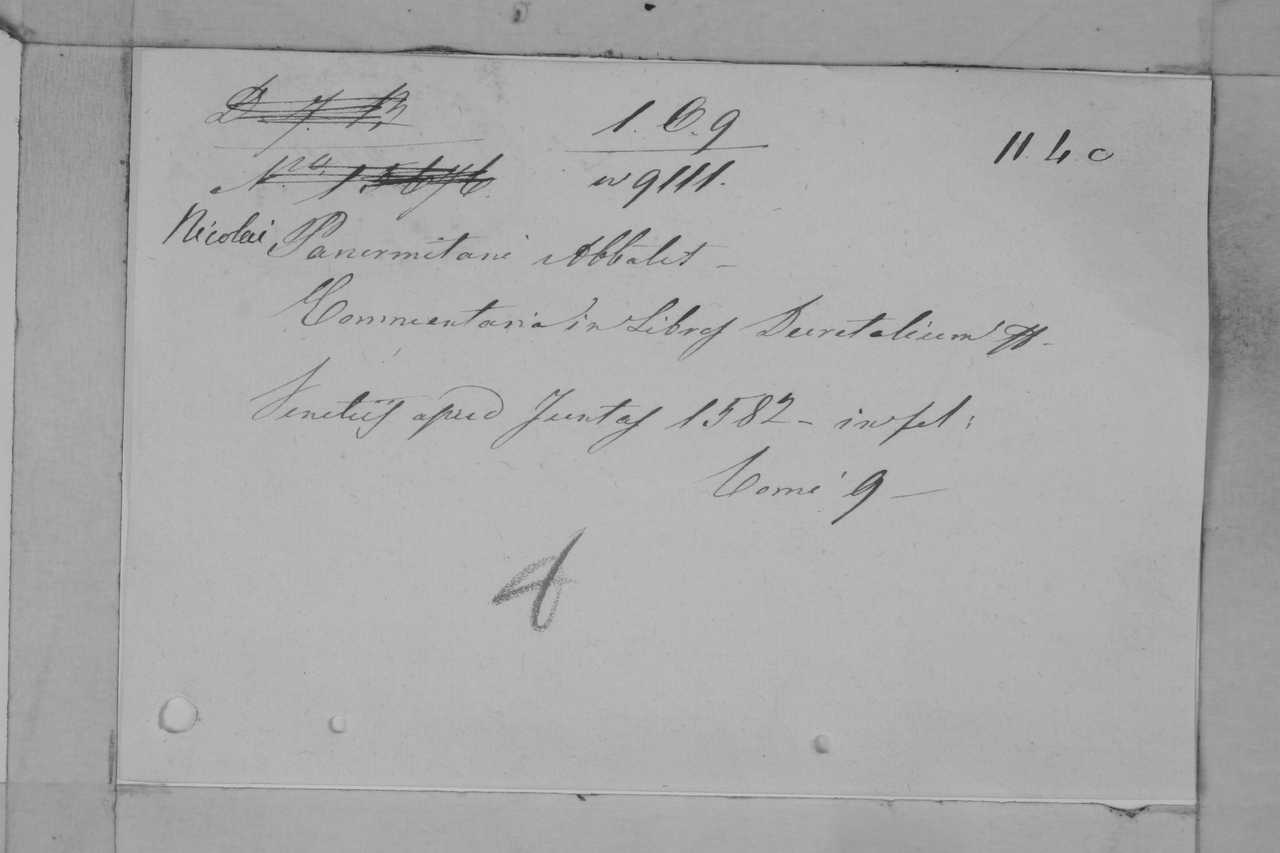 D. 7. 13 1. C. 9 11. 4 0
Nro 15676. w 9111.
Nicolai Panormitani Abbatis –
Commentaria in Libros Decretalium
Venetiis apud Juntas 1582 – in fol:
Tomi 9 –